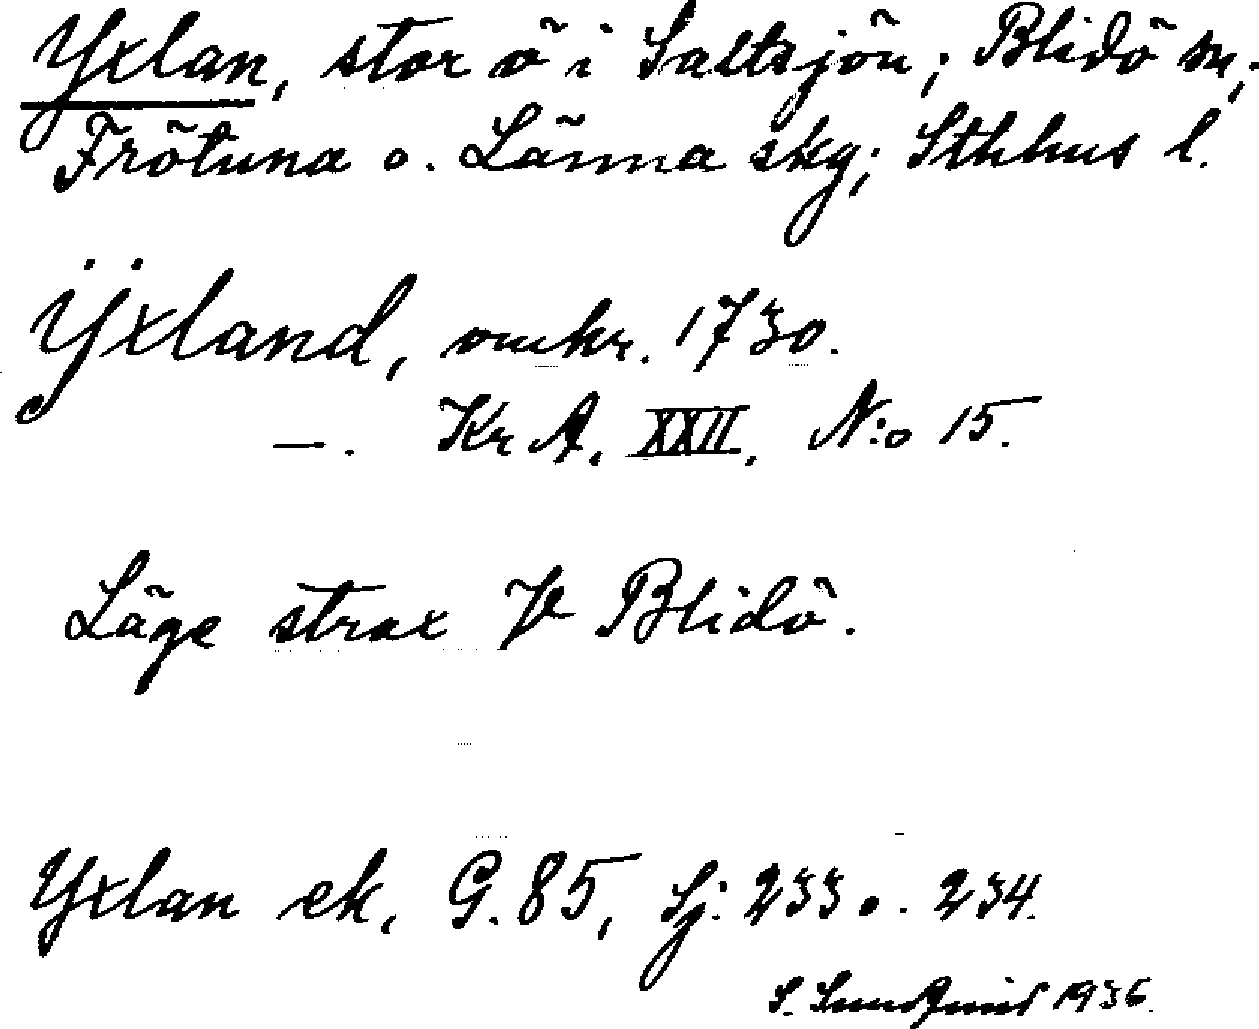 Yxlan, stor ö i Saltsjön; Blidö sn;
Frötuna o. Länna skg; Sthhus l.
Ÿxland, omkr. 1730.
—. Kr A. XXII. N:o 15.
Läge strax V Blidö.
Yxlan ek. G. 85, Sj: 233 o. 234.
S. Sundquist 1936.